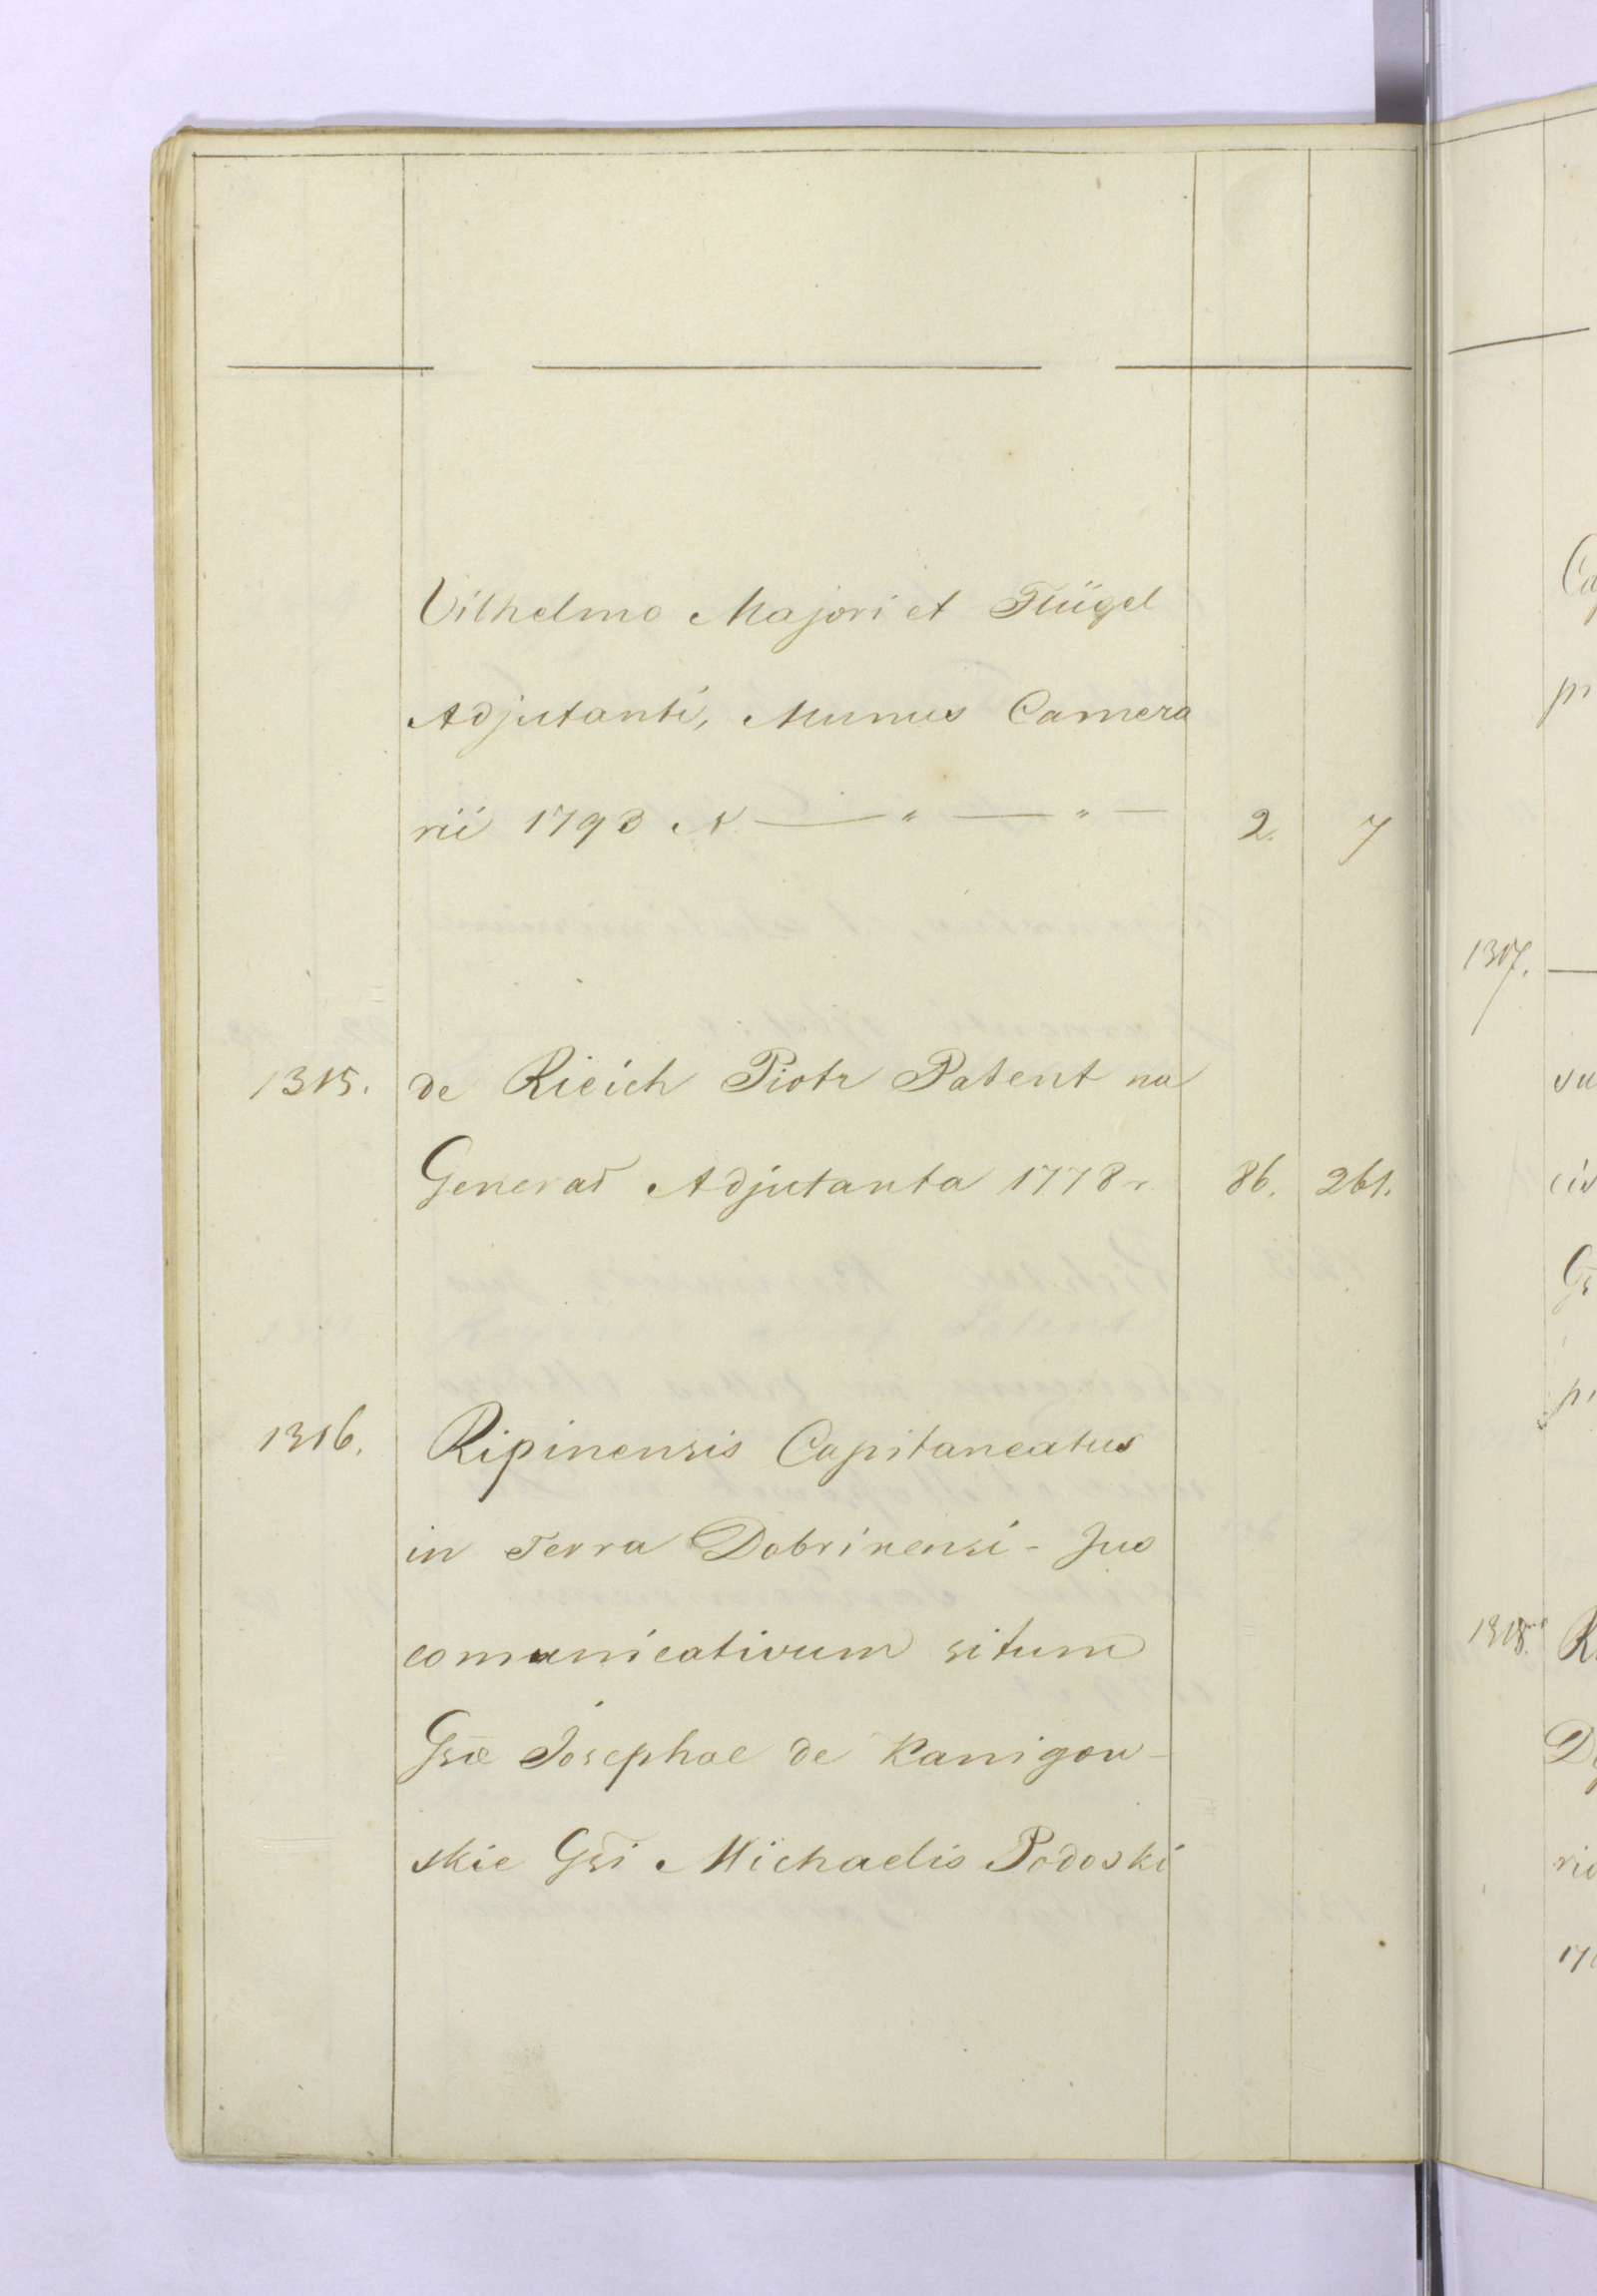 Vilhelmo Majori et Flügel
Adjutanti, Munus Camera
rii 1793 N — " — " — 2. 7
1315. de Rieich Piotr Patent na
Generał Adjutanta 1778 r. 86. 261.
1316. Ripinensis Capitaneatus
in Terra Dobrinensi - Jus
comunicativum situm
Gsæ Josephae de Kanigow-
skie Gsi Michaelis Podoski
1317.
1318.